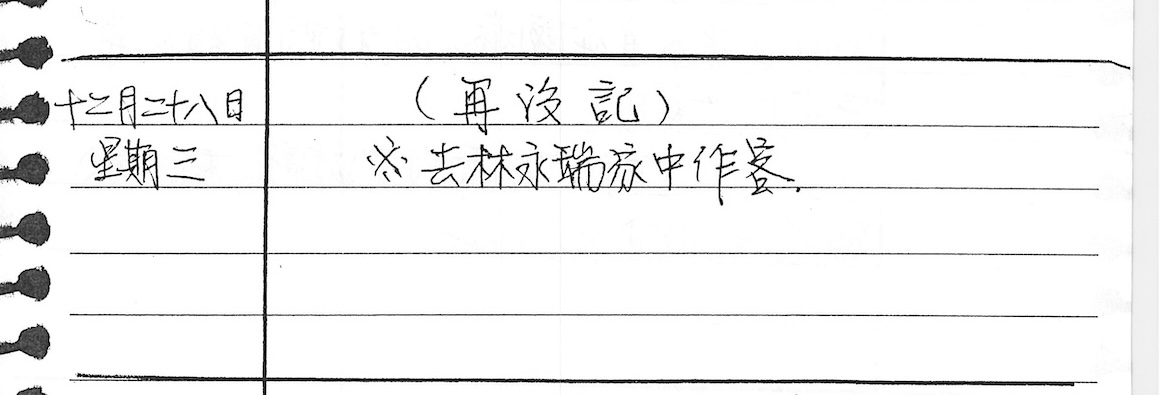 十二月二十八日
（再沒記）
星期三
※去林永瑞家中作客.